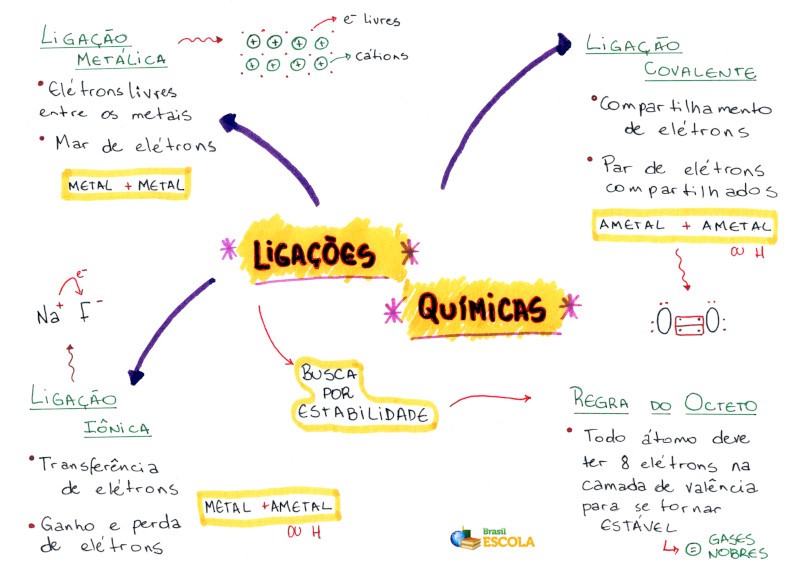 LIGAÇÃO
METÁLICA
• Elétrons livres
entre os metais
• Mar de elétrons
METAL + METAL
e- livres
+ + + +
+ + + +
cátions
LIGAÇÃO
COVALENTE
• Compartilhamento
de elétrons
• Par de elétrons
compartilhados
AMETAL + AMETAL
OU H
:O O:
* LIGAÇÕES *
* QUÍMICAS *
e-
Na+ F-
LIGAÇÃO
IÔNICA
• Transferência
de elétrons
• Ganho e perda
de elétrons
METAL + AMETAL
OU H
BUSCA
POR
ESTABILIDADE
REGRA DO OCTETO
• Todo átomo deve
ter 8 elétrons na
camada de valência
para se tornar
ESTÁVEL
= GASES
NOBRES
Brasil
ESCOLA